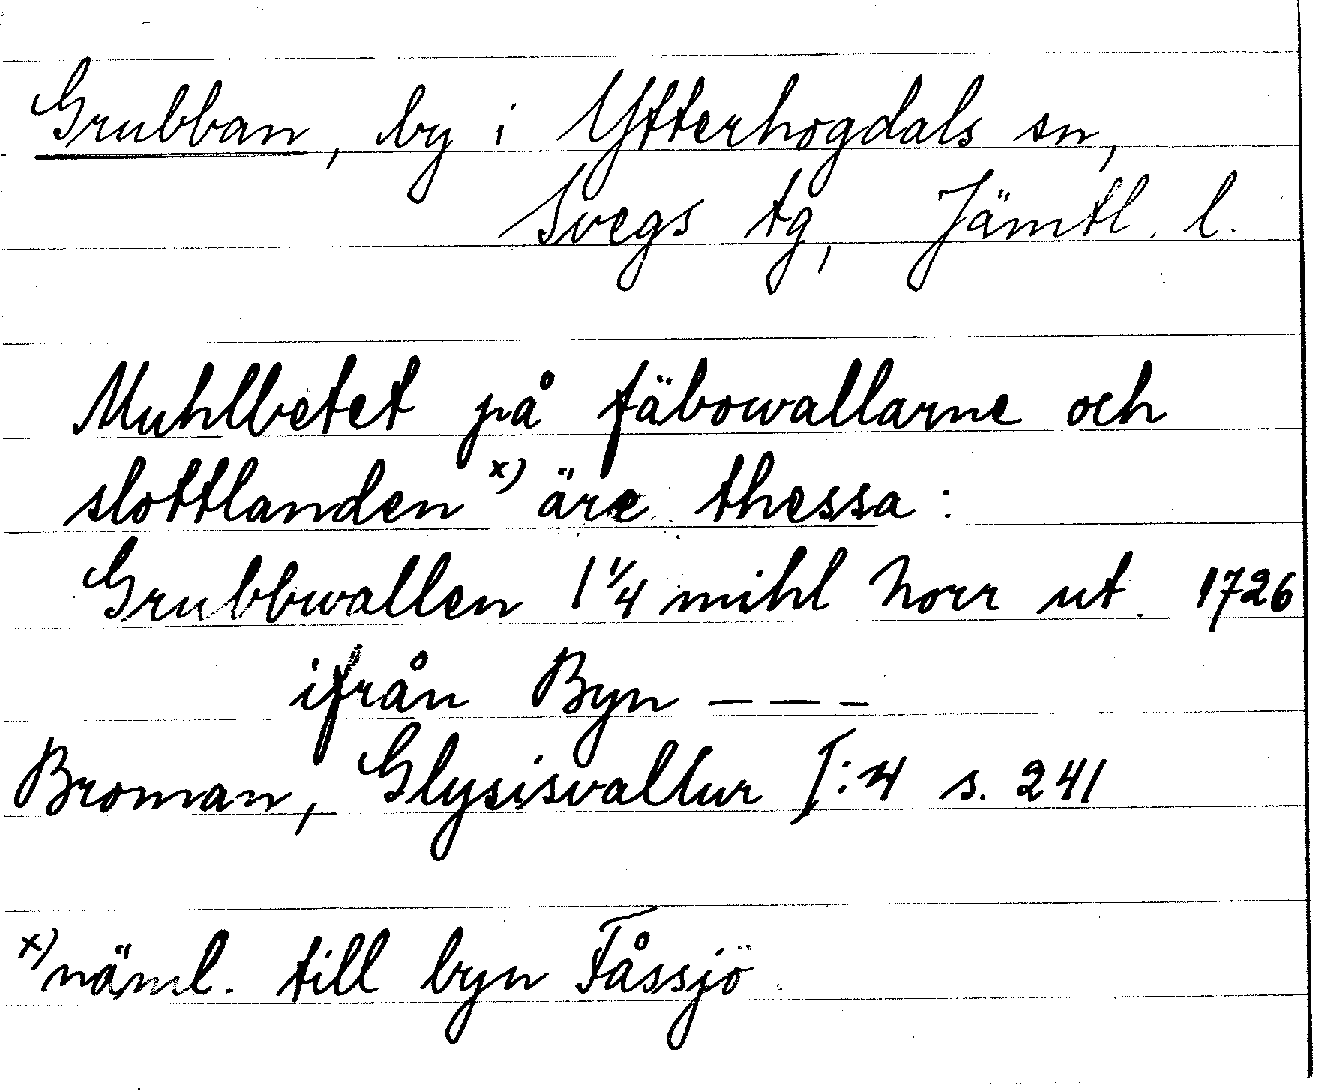 Grubban, by i Ytterhogdals sn,
Svegs tg, Jämtl. l.
Muhlbetet på fäbowallarne och
slottlanden x) äre thessa:
Grubbwallen 1 1/4 mihl Norr ut. 1726
ifrån Byn – – –
Broman, Glysisvallur I:4 s. 241
x) näml. till byn Fåssjö